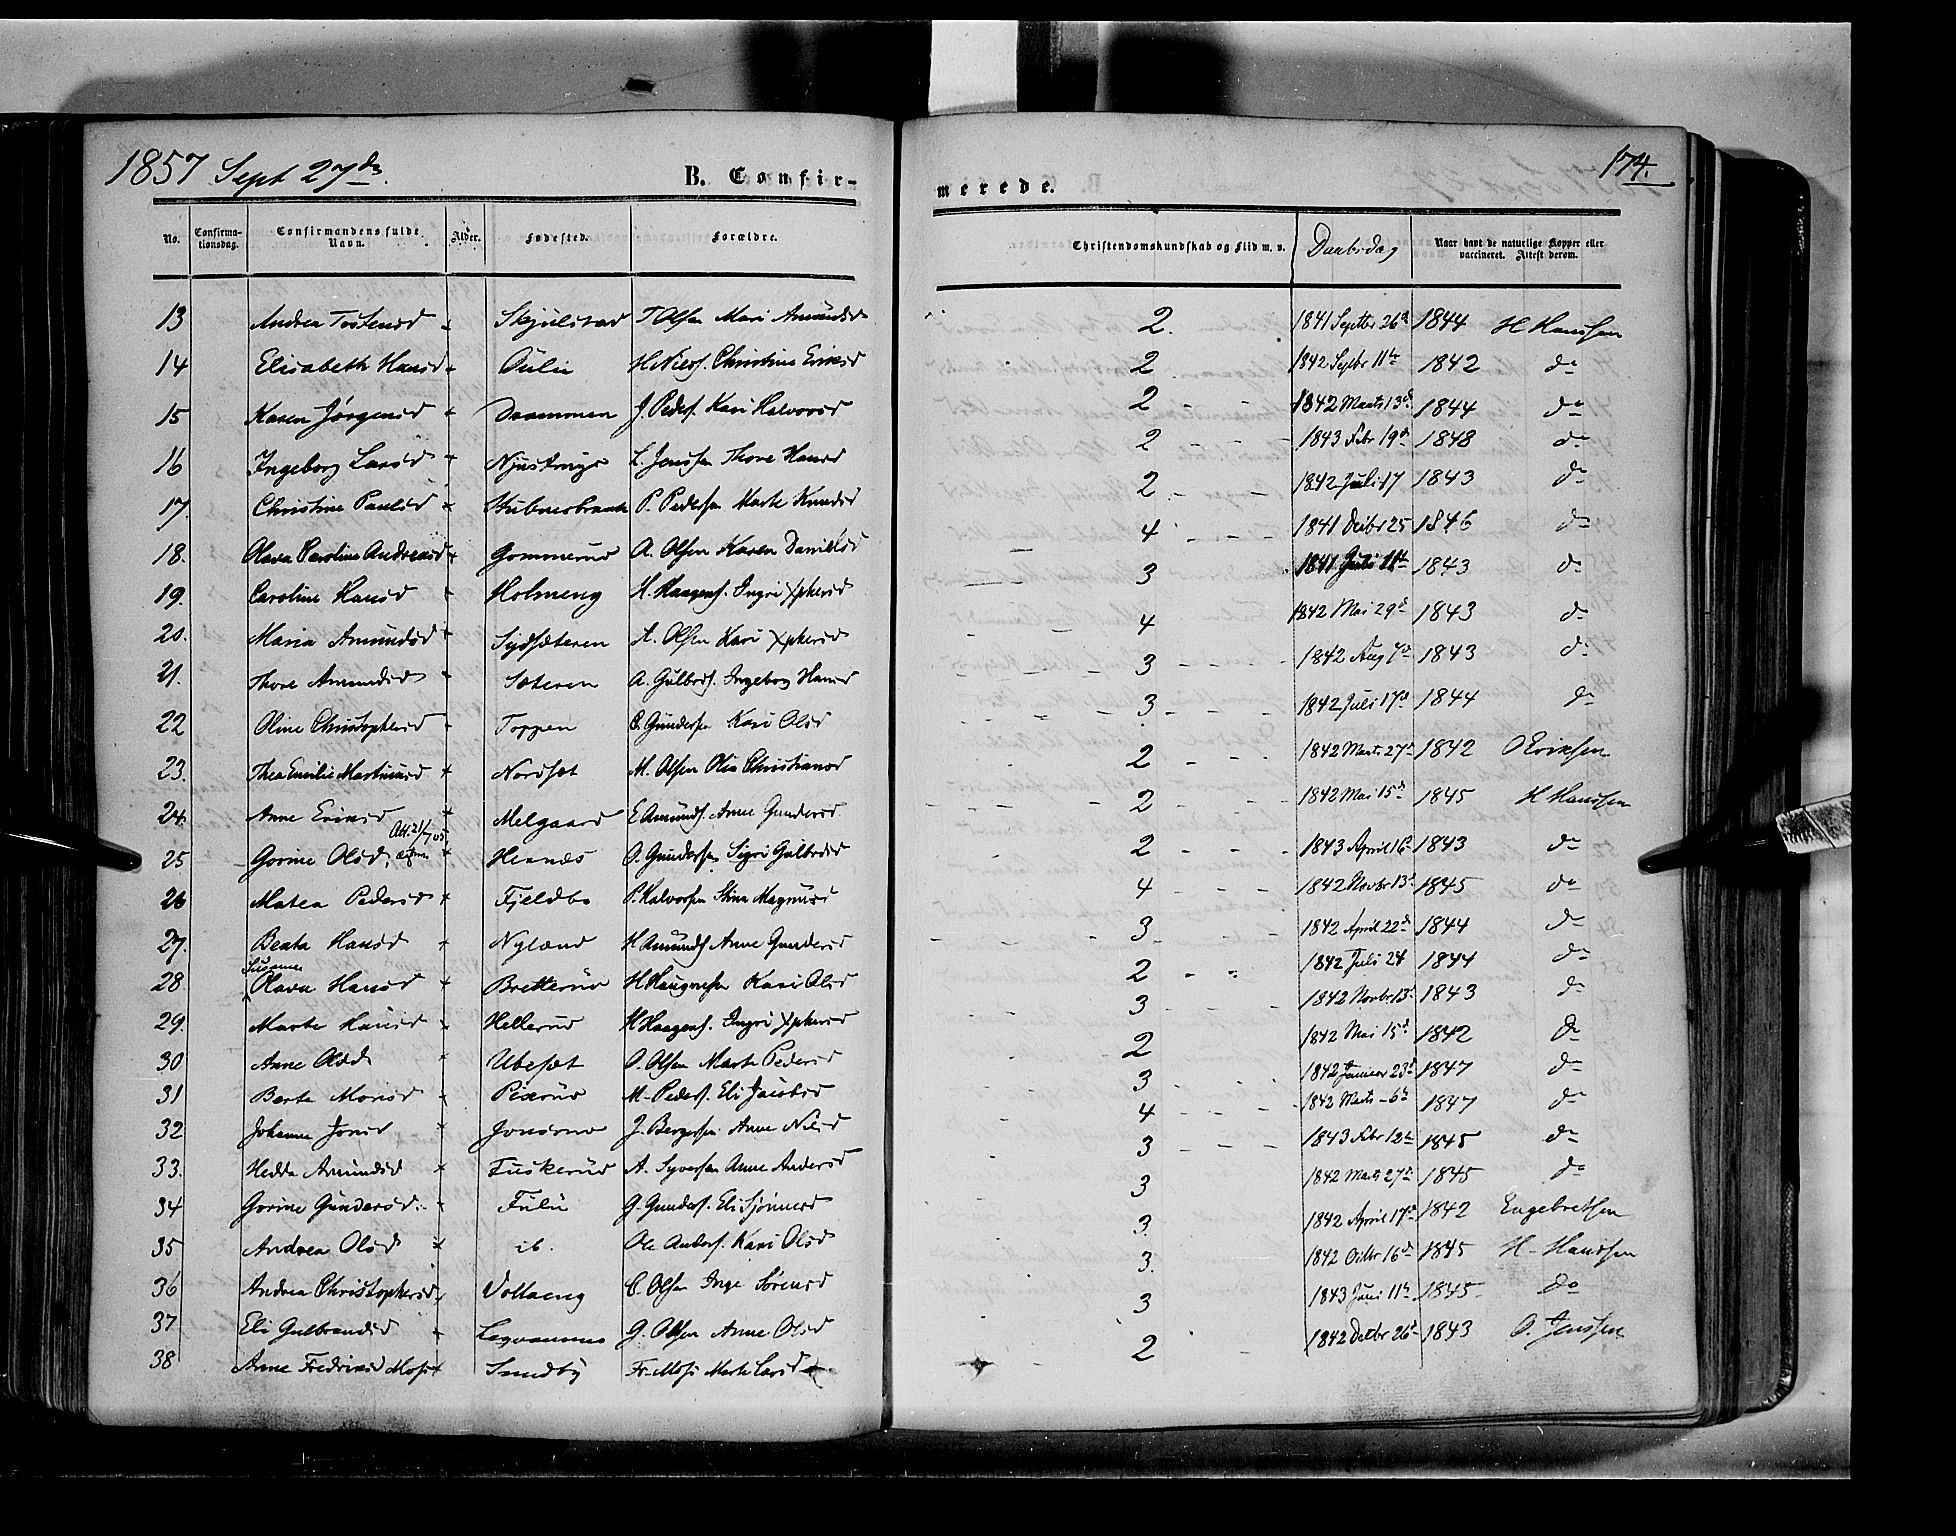 1857 Sept 27de. B. Confir-
merede. 174.
No. Confirma-tionsdag. Confirmandens fulde Navn. Alder. Fødested. Forældre. Christendomskundskab og Flid m. v. Daabsdag Naar havt de naturlige Kopper eller vaccineret. Attest derom.
13 Andrea Tostensd Skjulstad T Olsen Mari Amundsd 2. 1841 Septbr 26d 1844 H Hanssen
14 Elisabeth Hansd Oulie H Niels. Christine Eriksd 2 1842 Septbr 11te 1842 do
15 Karen Jørgensd Drammen J. Peders. Kari Halvorsd 2 1842 Marts 13d 1844 do
16 Ingeborg Larsd L. Jenssen Thore Hansd 2 1843 Febr 19d 1848 do
17. Christine Paulsd Hübnersbraaten P. Pedersen Marte Knudsd 2 1842 Juli 17 1843 do
18. Olava Caroline Andreasd Gommerud A. Olsen Karen Danielsd 4 1841 Decbr 25 1846 do
19. Caroline Hansd Holmeng H. Haagens. Ingri Xphersd 3 1841 Juli 11te 1843 do
20. Maria Amundsd Sydsæteren A. Olsen Kari Xphersd 4 1842 Mai 29d 1843 do
21. Thore Amundsd Sæteren A. Gulbrds. Ingeborg Hansd 3 1842 Aug 7d 1843 do
22 Oline Christophersd Toppen C. Gundersen Kari Olsd 3 1842 Juli 17d 1844 do
23. Thea Emilie Martinusd Nordsæt M. Olsen Olia Christiansd 2 1842 Marts 27d 1842 O Eriksen
24. Anne Eriksd Melgaard E Amunds. Anne Gundersd 2 1842 Mai 15d 1845 H Hanssen
Att. 21/7 05
25 Gorine Olsd, Hernæs O. Gundersen Sigri Gulbrdsd 2 1843 April 16 1843 do
26 Matea Pedersd Fjeldbo P. Halvorsen Stina Magnusd 4 1842 Novbr 13d 1845 do
27. Beata Hansd Nyland H Amunds Anne Gundersd 3 1842 April 22d 1844 do
Susanne
28 Olava Hansd Bretterud H Haugnessen Kari Olsd 2 1842 Juli 24 1844 do
29. Marte Hansd Hellerud H Haagens. Ingri Xphersd 3 1842 Novbr 13d 1843 do
30 Anne Olsd Ubesæt O. Olsen Marte Pedersd 2 1842 Mai 15d 1842 do
31 Berte Monsd Pixrud M. Peders. Eli Jacobsd 3 1842 Januar 23d 1847 do
32 Johanne Jonsd Jonsrud J. Bergersen Anne Nilsd 4 1842 Marts 6te 1847 do
33. Hedda Amundsd Tuskerud A. Syversen Anne Andersd 3 1843 Febr 12te 1845 do
34 Gorine Gundersd. Fulu G. Gunders. Eli Sjønnersd 3 1842 Marts 27d 1845 do
35 Andrea Olsd ib. Ole Anders. Kari Olsd 3. 1842 April 17d 1842 Engebretsen
36 Andrea Christophersd Vollaeng C. Olsen Inge Sørensd 3. 1842 Octbr 16d 1845 H. Hanssen
37 Eli Gulbrandsd Legvammen G. Olsen Anne Olsd 3 1843 Juni 11te 1845 do
38 Anne Fredriksd Moss Sundby Fr. Moss Marte Larsd 2 1842 Decbr 26d 1843 O. Jenssen